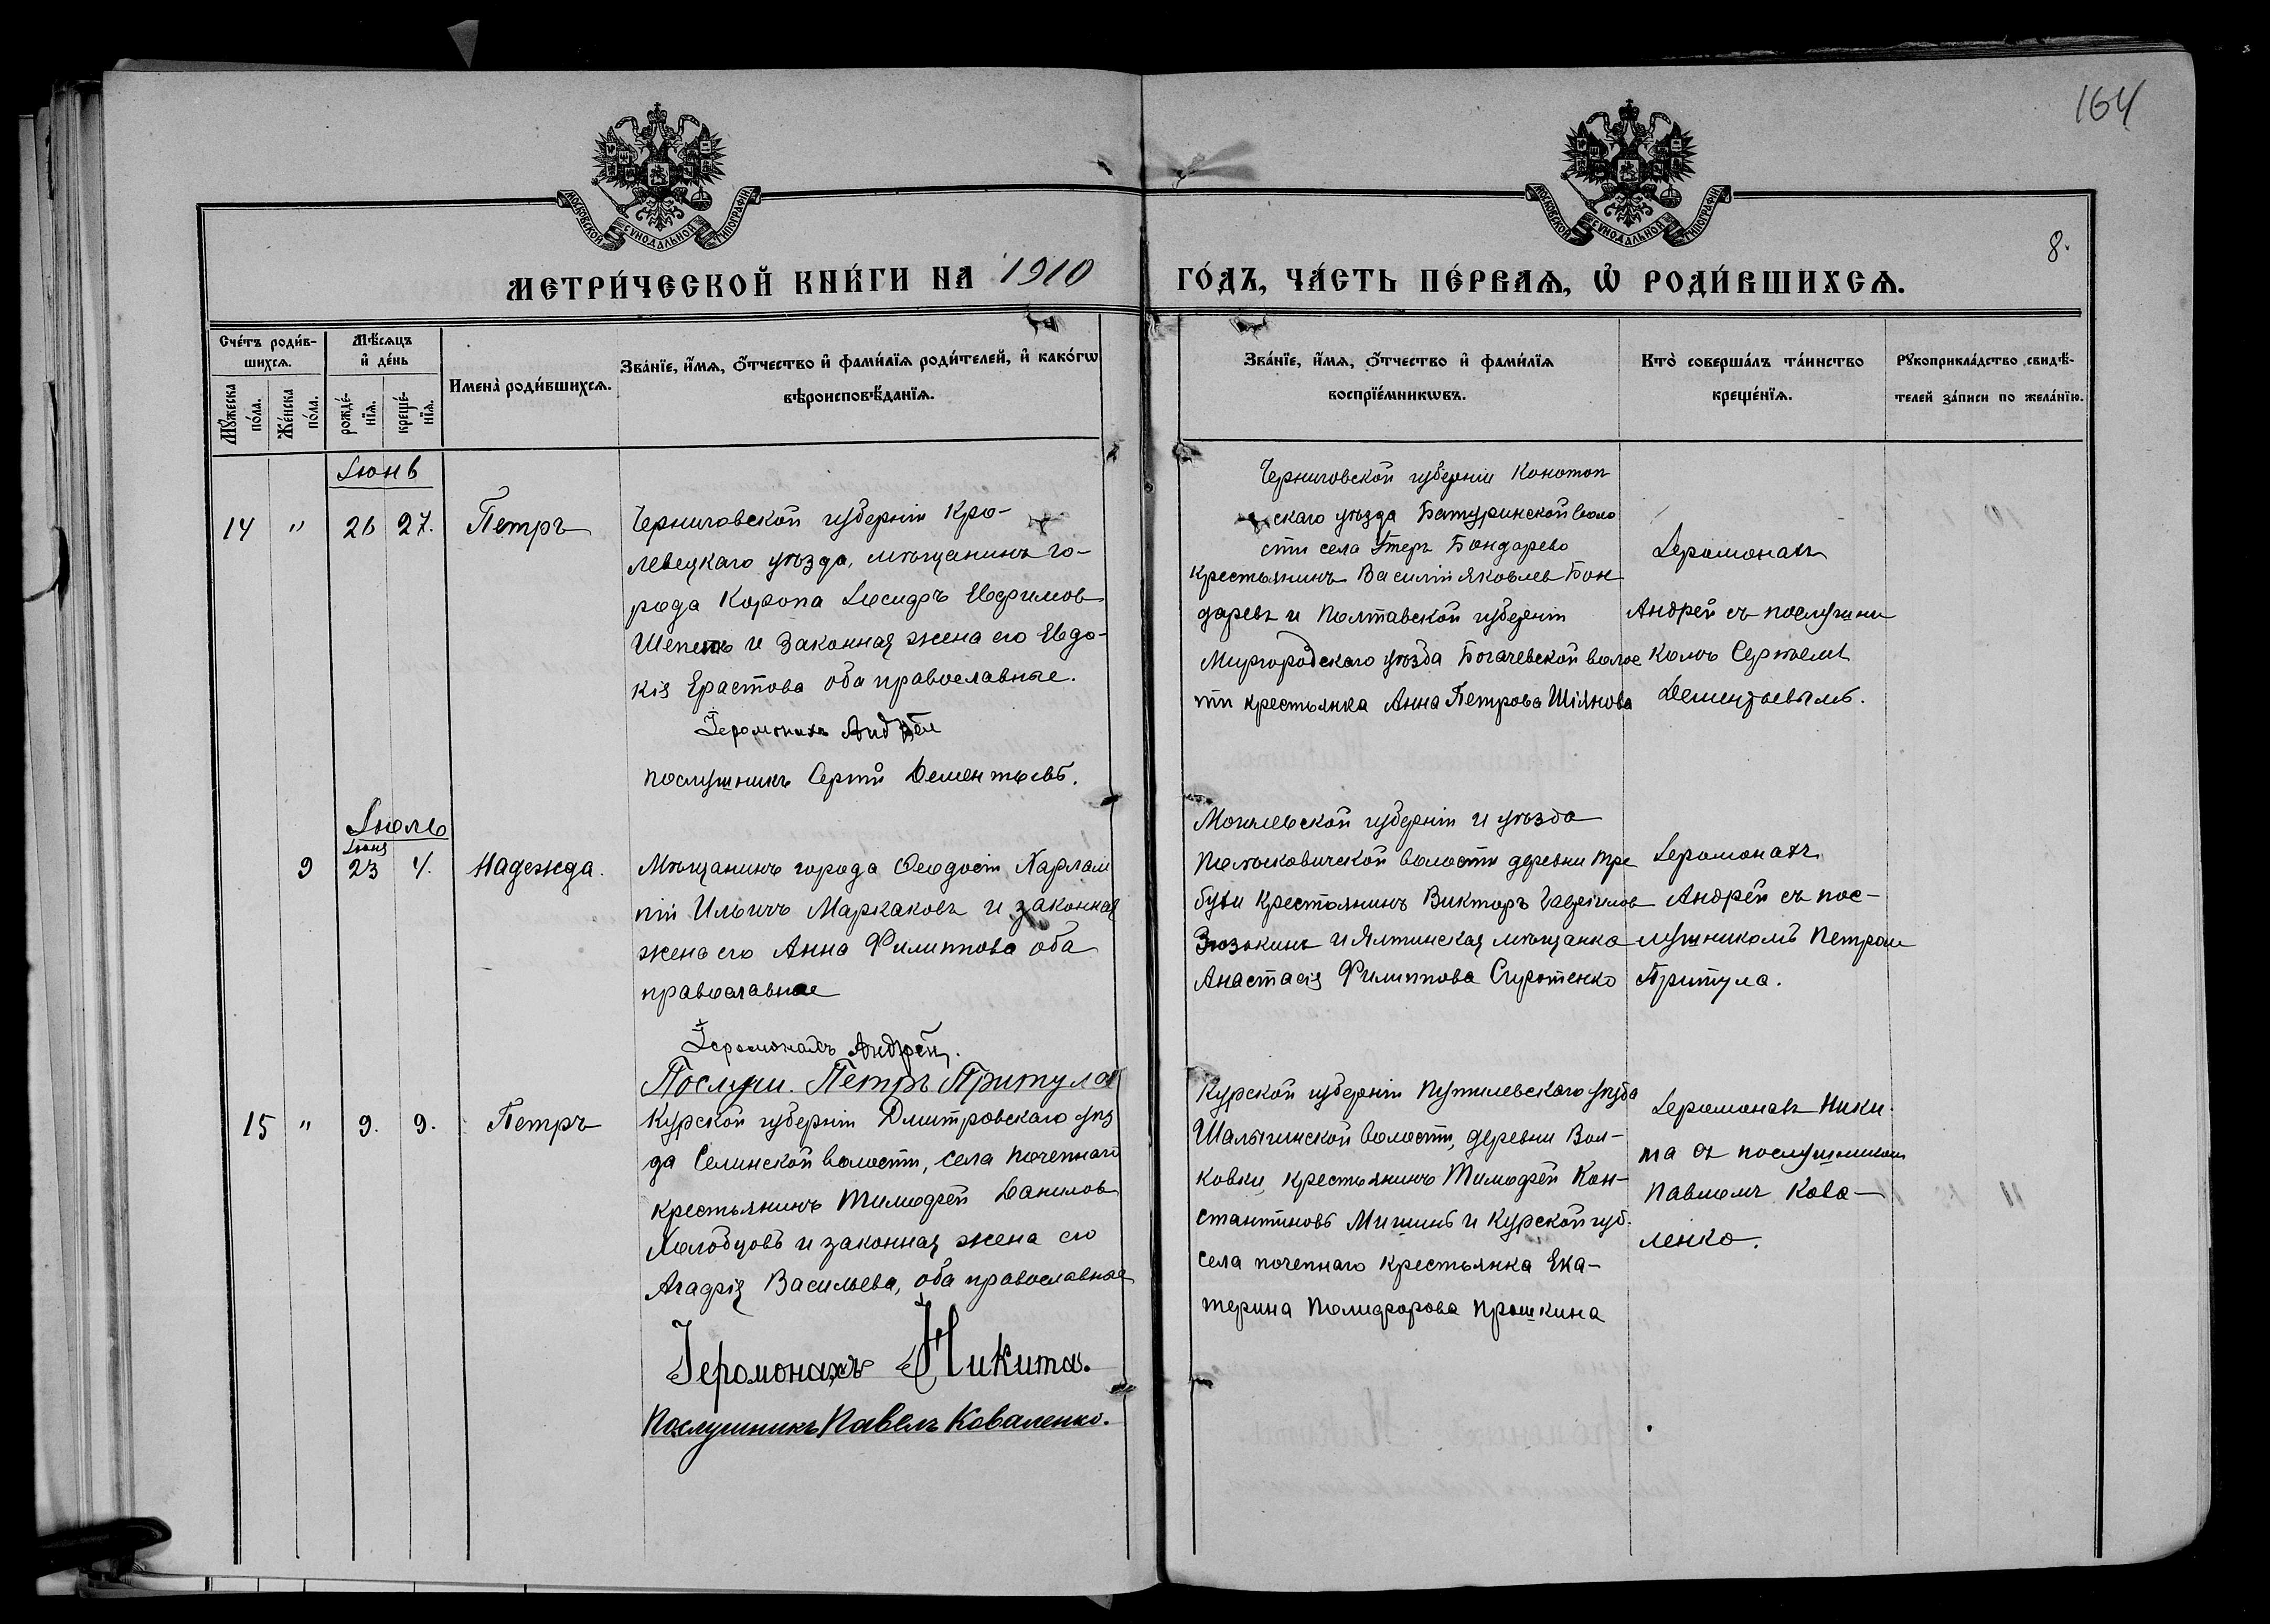 164
МОСКОВСКОЙ СУНОДАЛЬНОЙ ТИПОГРАФІИ
МОСКОВСКОЙ СУНОДАЛЬНОЙ ТИПОГРАФІИ
8.
МЕТРИ́ЧЕСКОЙ КНИ́ГИ НА 1910
ГО́ДЪ, ЧА́СТЬ ПЕ́РВАѦ, Ѡ҆ РОДИ́ВШИХСѦ.
Сче́тъ роди́в-
шихсѧ.
Мꙋ́жеска
по́ла.
Же́нска
по́ла.
Мѣ́сѧцъ
и҆ де́нь
рожде́-
нїѧ.
креще́-
нїѧ.
Имена̀ роди́вшихсѧ.
Зва́нїе, и҆́мѧ, ѻ҆́тчество и҆ фами́лїѧ роди́телей, и҆ како́гѡ
вѣроисповѣ́данїѧ.
Зва́нїе, и҆́мѧ, ѻ҆́тчество и҆ фами́лїѧ
воспрїе́мникѡвъ.
Кто̀ соверша́лъ та́инство
креще́нїѧ.
Рꙋкоприкла́дство свидѣ́-
телей за́писи по жела́нїю.
Іюнь
14 " 26 27. Петръ
Черниговской губерніи Кро-
левецкаго уѣзда, мѣщанинъ го-
рода Коропа Іосифъ Евфимов
и законная жена его Евдо-
кія Ерастова оба православные.
Іеромонахъ Андрей
послушникъ Сергій Дементьевъ.
Черниговской губерніи Конотоп
скаго уѣзда Батуринской воло
сти села Бондарево
крестьянинъ Василій Яковлев Бон
даревъ и Полтавской губерніи
Миргородскаго уѣзда Богачевской волос
ти крестьянка Анна Петрова Шіянова
Іеромонахъ
Андрей съ послушни
комъ Сергѣемъ
Дементьевымъ.
Іюль
Іюня
9 23 4. Надежда.
Мѣщанинъ города Ѳеодосіи Харлам
пій Ильичъ Маркаковъ и законная
жена его Анна Филиппова оба
православные
Іеромонахъ Андрей.
Послуш. Петръ Притула
Могилевской губерніи и уѣзда
волости деревни Тре
бухи крестьянинъ Викторъ Гавріилов
Зюзькинъ и Ялтинская мѣщанка
Анастасія Филиппова Сиротенко
Іеромонахъ
Андрей съ пос-
лушникомъ Петром
Притула.
15 " 9. 9. Петръ
Курской губерніи Дмитровскаго уѣз
да Селинской волости, села Почепнаго
крестьянинъ Тимофей Данилов
Холобцовъ и законная жена его
Агафія Васильева, оба православные
Іеромонахъ Никита.
Послушникъ Павелъ Коваленко.
Курской губерніи Путивлевскаго уѣзда
Шалыгинской волости, деревни Вол-
ковки, крестьянинъ Тимофей Кон-
стантиновъ Мишинъ и Курской губ.
села почепнаго крестьянка Ека-
терина Полифорова Прошкина
Іеромонахъ Ники-
та съ послушникомъ
Павломъ Кова-
ленко.